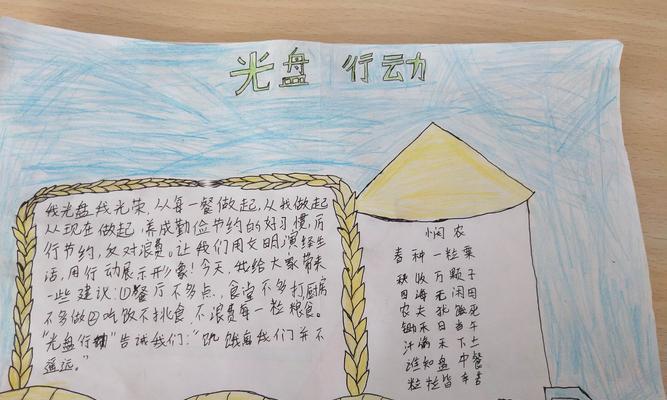 光盘 行动
我光盘我光荣,从每一餐做起,从我做起
从现在做起,养成勤俭节约的好习惯,厉
行节约,反对浪费。让我们用文明演绎生
活,用行动展示形象!今天,我给大家带来
一些建议:①餐厅不多点,食堂不多打,厨房
不多做②吃饭不挑食,不浪费每一粒粮食。
"光盘行动"告诫我们:"饥饿离我们并不
遥远。"
悯农
春种一粒粟
秋收万颗子
四海无闲田
农夫犹饿死
锄禾日当午
汗滴禾下土
谁知盘中餐
粒粒皆辛苦